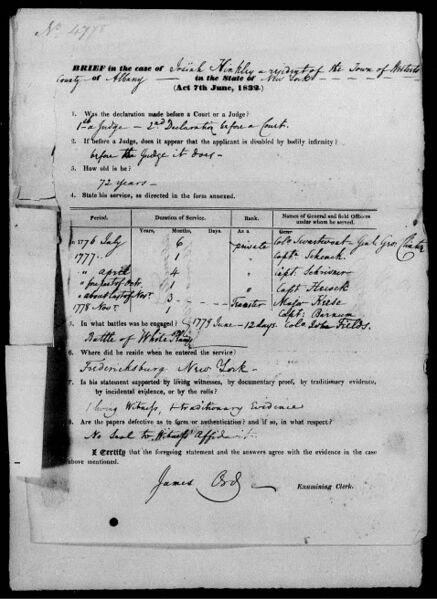 No 477
BRIEF in the case of Josiah Hinkley a resident of the Town of
County of Albany in the State of New York
(Act 7th June, 1832.)
1. Was the declaration made before a Court or a Judge?
1st a Judge — 2nd Declaration before a Court.
2. If before a Judge, does it appear that the applicant is disabled by bodily infirmity?
before the Judge it does —
3. How old is he?
72 years —
4. State his service, as directed in the form annexed.
Period. Duration of Service. Rank. Names of General and field Officers under whom he served.
Years, Months, Days. As a
In 1776 July 6 private Colo Swartwout — Genl Geo. Clinton
1777 . 1 " Captn Schenck
" april 4 " Capt
" 1 " Capt
" about last of Novr 3 Teamster Major Reese
1778 Novr Capt Barnum
5. In what battles was he engaged? 1779 June — 12 days. Colo John Fields.
Battle of White Plains
6. Where did he reside when he entered the service?
Fredericksburg New York —
7. Is his statement supported by living witnesses, by documentary proof, by traditionary evidence,
by incidental evidence, or by the rolls?
1 living Witness, & traditionary Evidence
8. Are the papers defective as to form or authentication? and if so, in what respect?
No Seal to Witness' Affidavit
I Certify that the foregoing statement and the answers agree with the evidence in the case
above mentioned.
James Ord Examining Clerk.